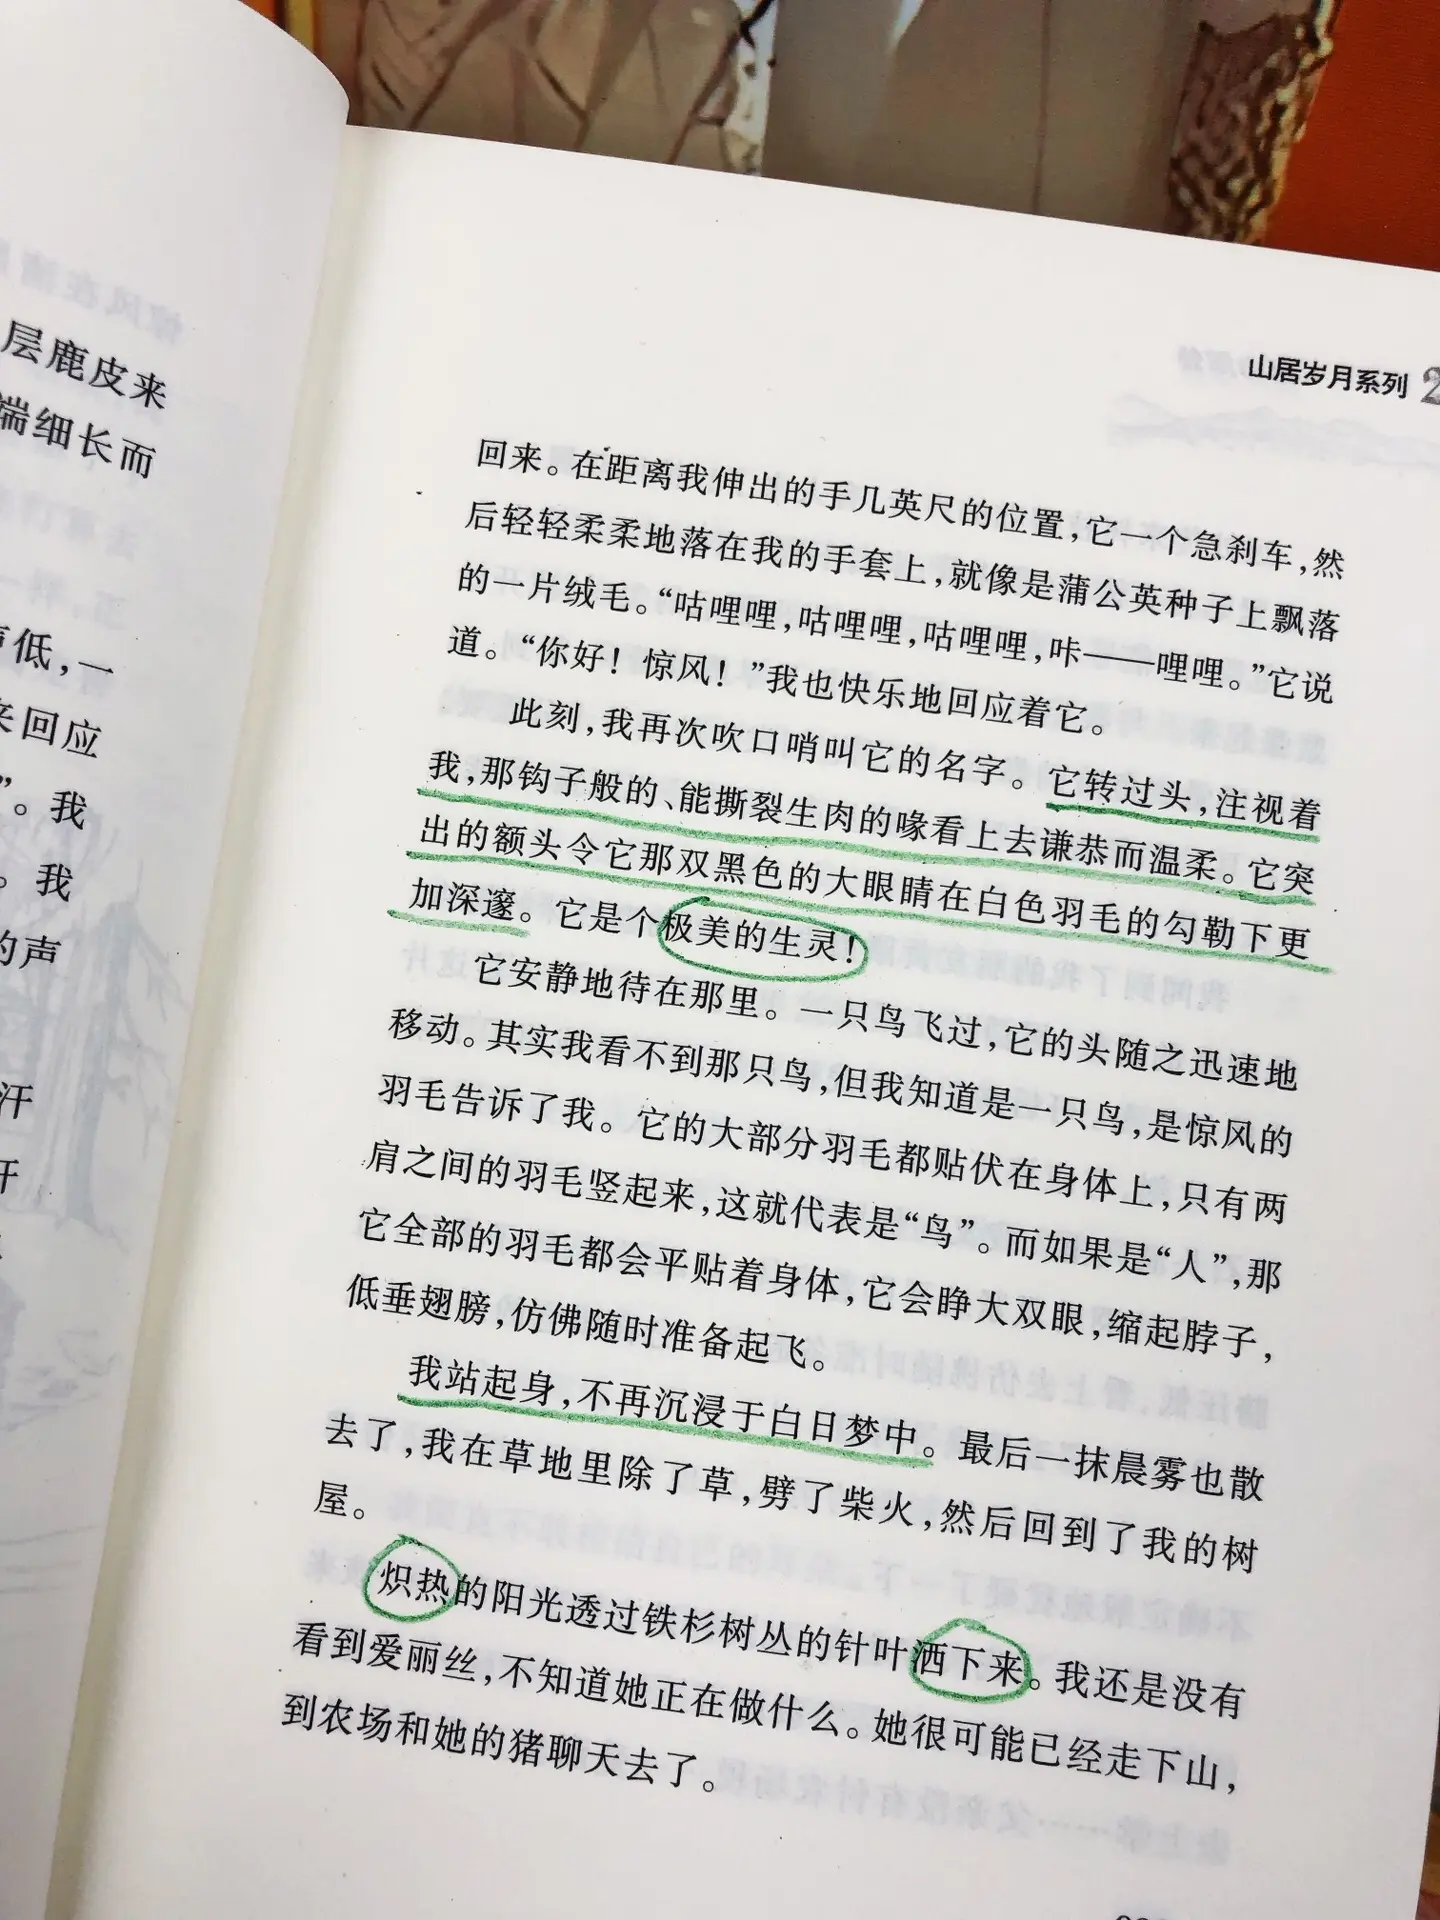 层鹿皮来
端细长而
低,一
来回应
”。我
。我
的声
汗
山居岁月系列 2
回来。在距离我伸出的手几英尺的位置,它一个急刹车,然
后轻轻柔柔地落在我的手套上,就像是蒲公英种子上飘落
的一片绒毛。“咕哩哩,咕哩哩,咕哩哩,咔——哩哩。”它说
道。“你好!惊风!”我也快乐地回应着它。
此刻,我再次吹口哨叫它的名字。它转过头,注视着
我,那钩子般的、能撕裂生肉的喙看上去谦恭而温柔。它突
出的额头令它那双黑色的大眼睛在白色羽毛的勾勒下更
加深邃。它是个极美的生灵!
它安静地待在那里。一只鸟飞过,它的头随之迅速地
移动。其实我看不到那只鸟,但我知道是一只鸟,是惊风的
羽毛告诉了我。它的大部分羽毛都贴伏在身体上,只有两
肩之间的羽毛竖起来,这就代表是“鸟”。而如果是“人”,那
它全部的羽毛都会平贴着身体,它会睁大双眼,缩起脖子,
低垂翅膀,仿佛随时准备起飞。
我站起身,不再沉浸于白日梦中。最后一抹晨雾也散
去了,我在草地里除了草,劈了柴火,然后回到了我的树
屋。
炽热的阳光透过铁杉树丛的针叶洒下来。我还是没有
看到爱丽丝,不知道她正在做什么。她很可能已经走下山,
到农场和她的猪聊天去了。